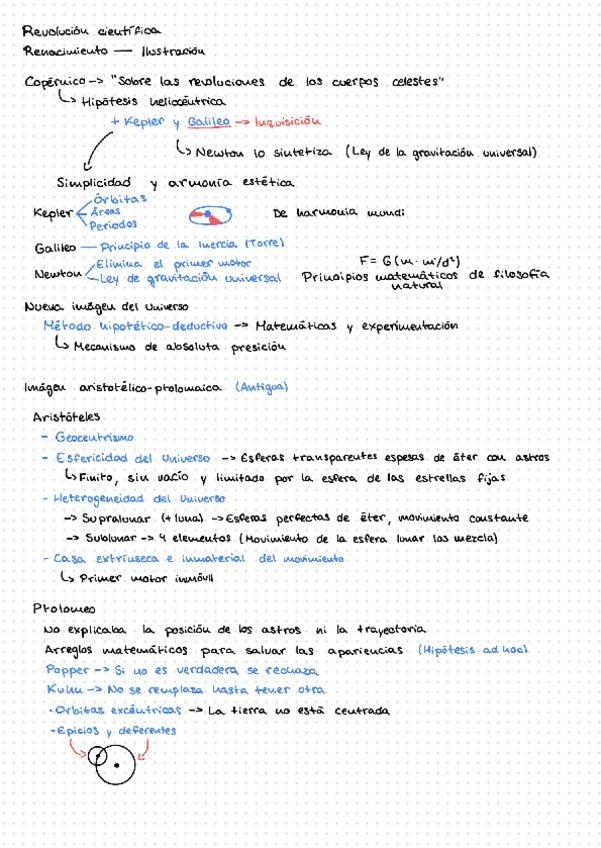 Revolución científica
Renacimiento — Ilustración
Copérnico -> "Sobre las revoluciones de los cuerpos celestes"
↳ Hipótesis heliocéntrica
+ Kepler y Galileo -> Inquisición
↳ Newton lo sintetiza (Ley de la gravitación universal)
Simplicidad y armonía estética
Kepler
Órbitas
Áreas
Periodos
De harmonia mundi
Galileo — Principio de la inercia (Torre)
Newton
Elimina el primer motor
Ley de gravitación universal
F = G (m · m'/d²)
Prinsipios matemáticos de filosofía
natural
Nueva imágen del universo
Método hipotético-deductivo -> Matemáticas y experimentación
↳ Mecanismo de absoluta presición
Imágen aristotélico-ptolomaica (Antigua)
Aristóteles
- Geocentrismo
- Esfericidad del Universo -> Esferas transparentes espesas de éter con astros
↳ Finito, sin vacío y limitado por la esfera de las estrellas fijas
- Heterogeneidad del Universo
-> Supralunar (+ luna) -> Esferas perfectas de éter, movimiento constante
-> Sublunar -> 4 elementos (Movimiento de la esfera lunar los mezcla)
- Casa extrínseca e inmaterial del movimiento
↳ Primer motor inmóvil
Ptolomeo
No explicaba la posición de los astros ni la trayectoria
Arreglos matemáticos para salvar las apariencias (Hipótesis ad hoc)
Popper -> Si no es verdadera se rechaza
Kuhn -> No se remplaza hasta tener otra
- Orbitas excéntricas -> La tierra no está centrada
- Epicios y deferentes